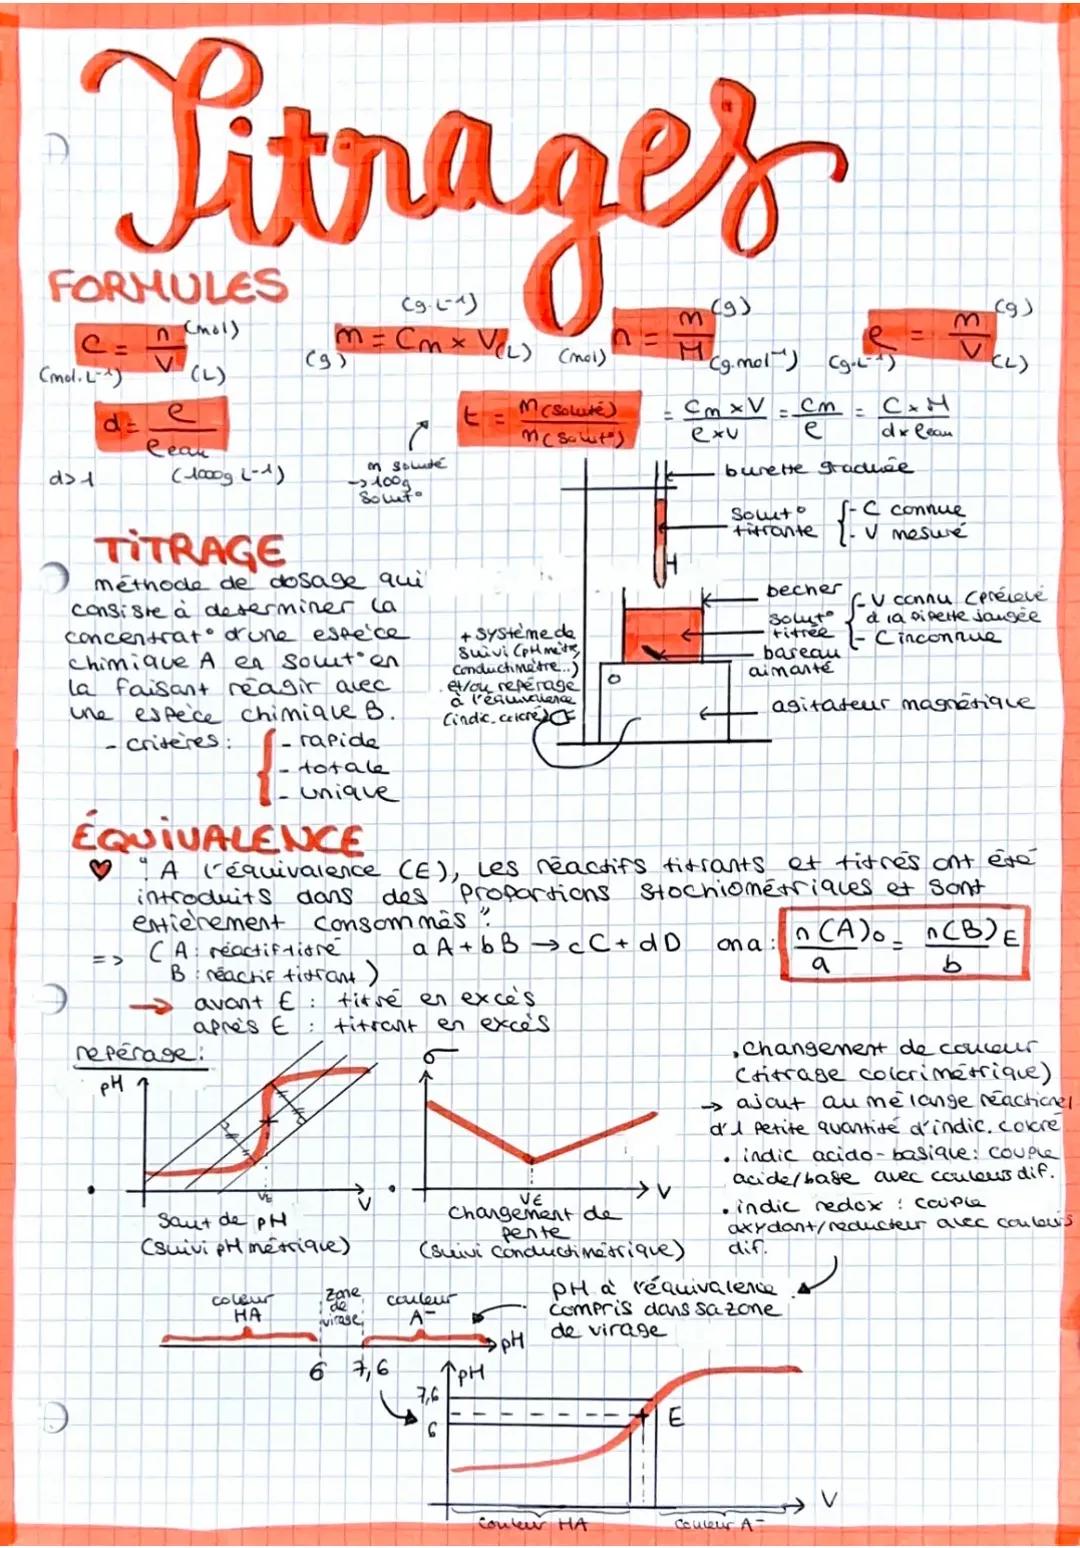 Titrages
FORMULES
C = n/V (mol) (mol.L⁻¹) (L)
m = Cm × V (g.L⁻¹) (g) (L)
n = m/M (g) (mol) (g.mol⁻¹)
ρ = m/V (g) (g.L⁻¹) (L)
d = ρ/ρeau
d>1 (1000g L⁻¹)
m soluté
→ 100g
Solut°
t = m(soluté)/m(solut°) = Cm×V/ρ×V = Cm/ρ = C×M/d×ρeau
TITRAGE
méthode de dosage qui
consiste à determiner la
concentrat° d'une espèce
chimique A en solut° en
la faisant réagir avec
une espèce chimique B.
- critères : { - rapide
- totale
- unique
burette graduée
Solut° titrante { - C connue
- V mesuré
becher
solut° titrée { - V connu (prélevé
à la pipette jaugée
- C inconnue
bareau
aimanté
agitateur magnétique
+ système de
suivi (pHmètre,
conductimètre...)
et/ou repérage
à l'équivalence
(indic. coloré)
ÉQUIVALENCE
♥ " A l'équivalence (E), les réactifs titrants et titrés ont été
introduits dans des proportions stochiométriques et sont
entièrement consommés ".
=> ( A: réactif titré
B : réactif titrant )
aA + bB → cC + dD on a : n(A)₀/a = n(B)E/b
→ avant E : titré en excès
après E : titrant en excès
repérage :
pH
VE
V
Saut de pH
(suivi pH métrique)
σ
VE
V
Changement de
pente
(suivi conductimétrique)
. changement de couleur
(titrage colorimétrique)
→ ajout au mélange réactionel
d'1 petite quantité d'indic. coloré
. indic acido-basique : couple
acide/base avec couleurs dif.
. indic redox : couple
oxydant/reducteur avec couleurs
dif.
pH à l'équivalence
compris dans sa zone
de virage
couleur
HA
zone
de
virage
couleur
A⁻
pH
6
7,6
pH
7,6
6
E
V
couleur HA
couleur A⁻